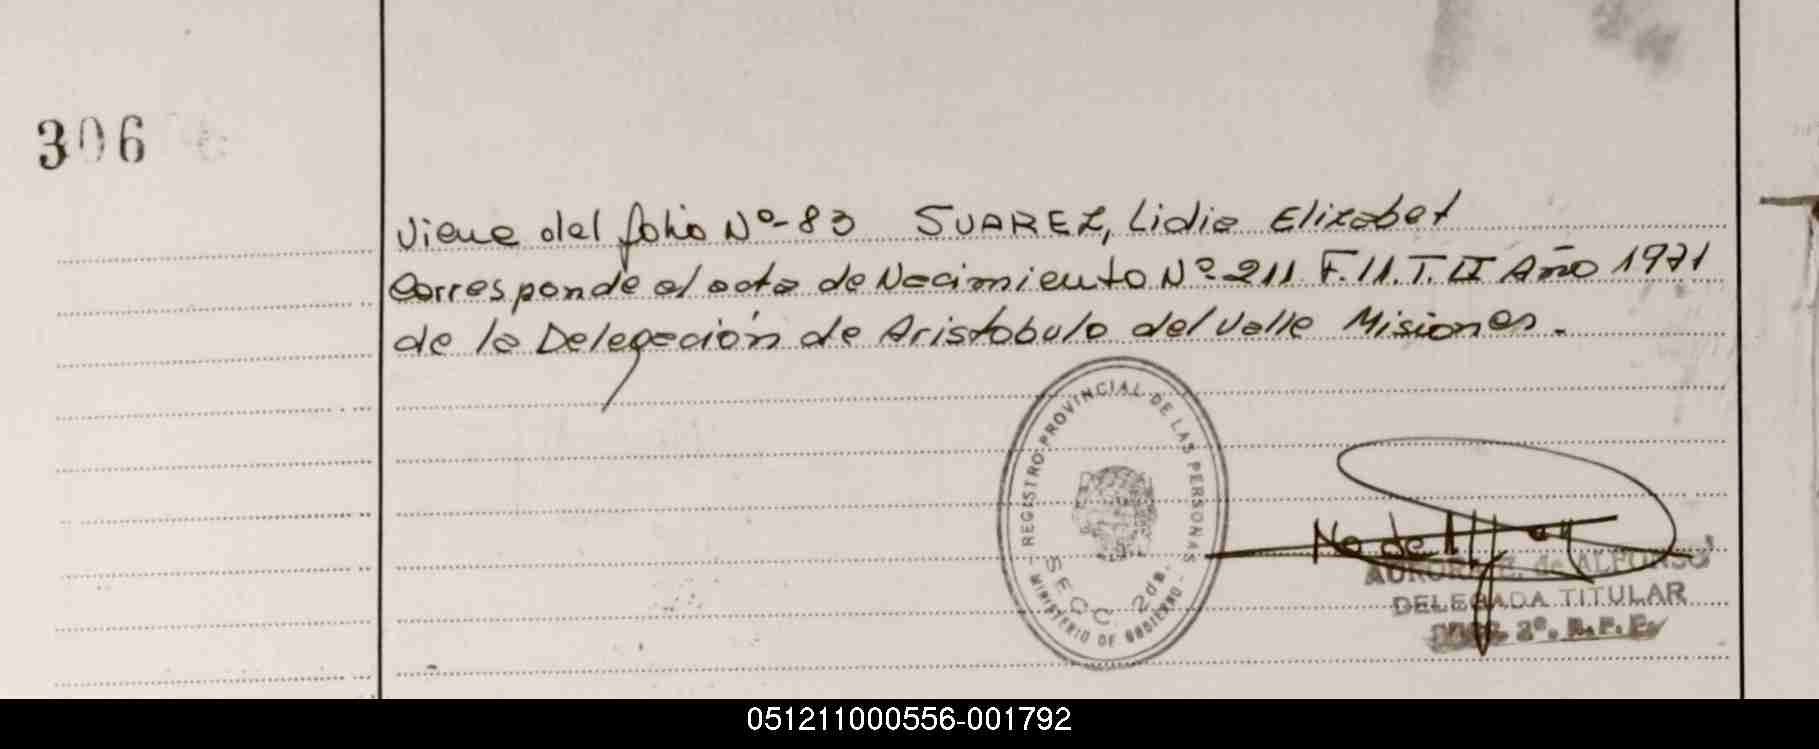 306
Viene del folio Nº-83 SUAREZ, Lidia Elizabet
Corresponde al acta de Nacimiento Nº 211 F.11.T.II Año 1971
de la Delegación de Aristobulo del Valle Misiones.
REGISTRO PROVINCIAL DE LAS PERSONAS
SECC 2da.
MINISTERIO DE GOBIERNO
de ALFONSO
DELEGADA TITULAR
2º. R.P.P.
051211000556-001792